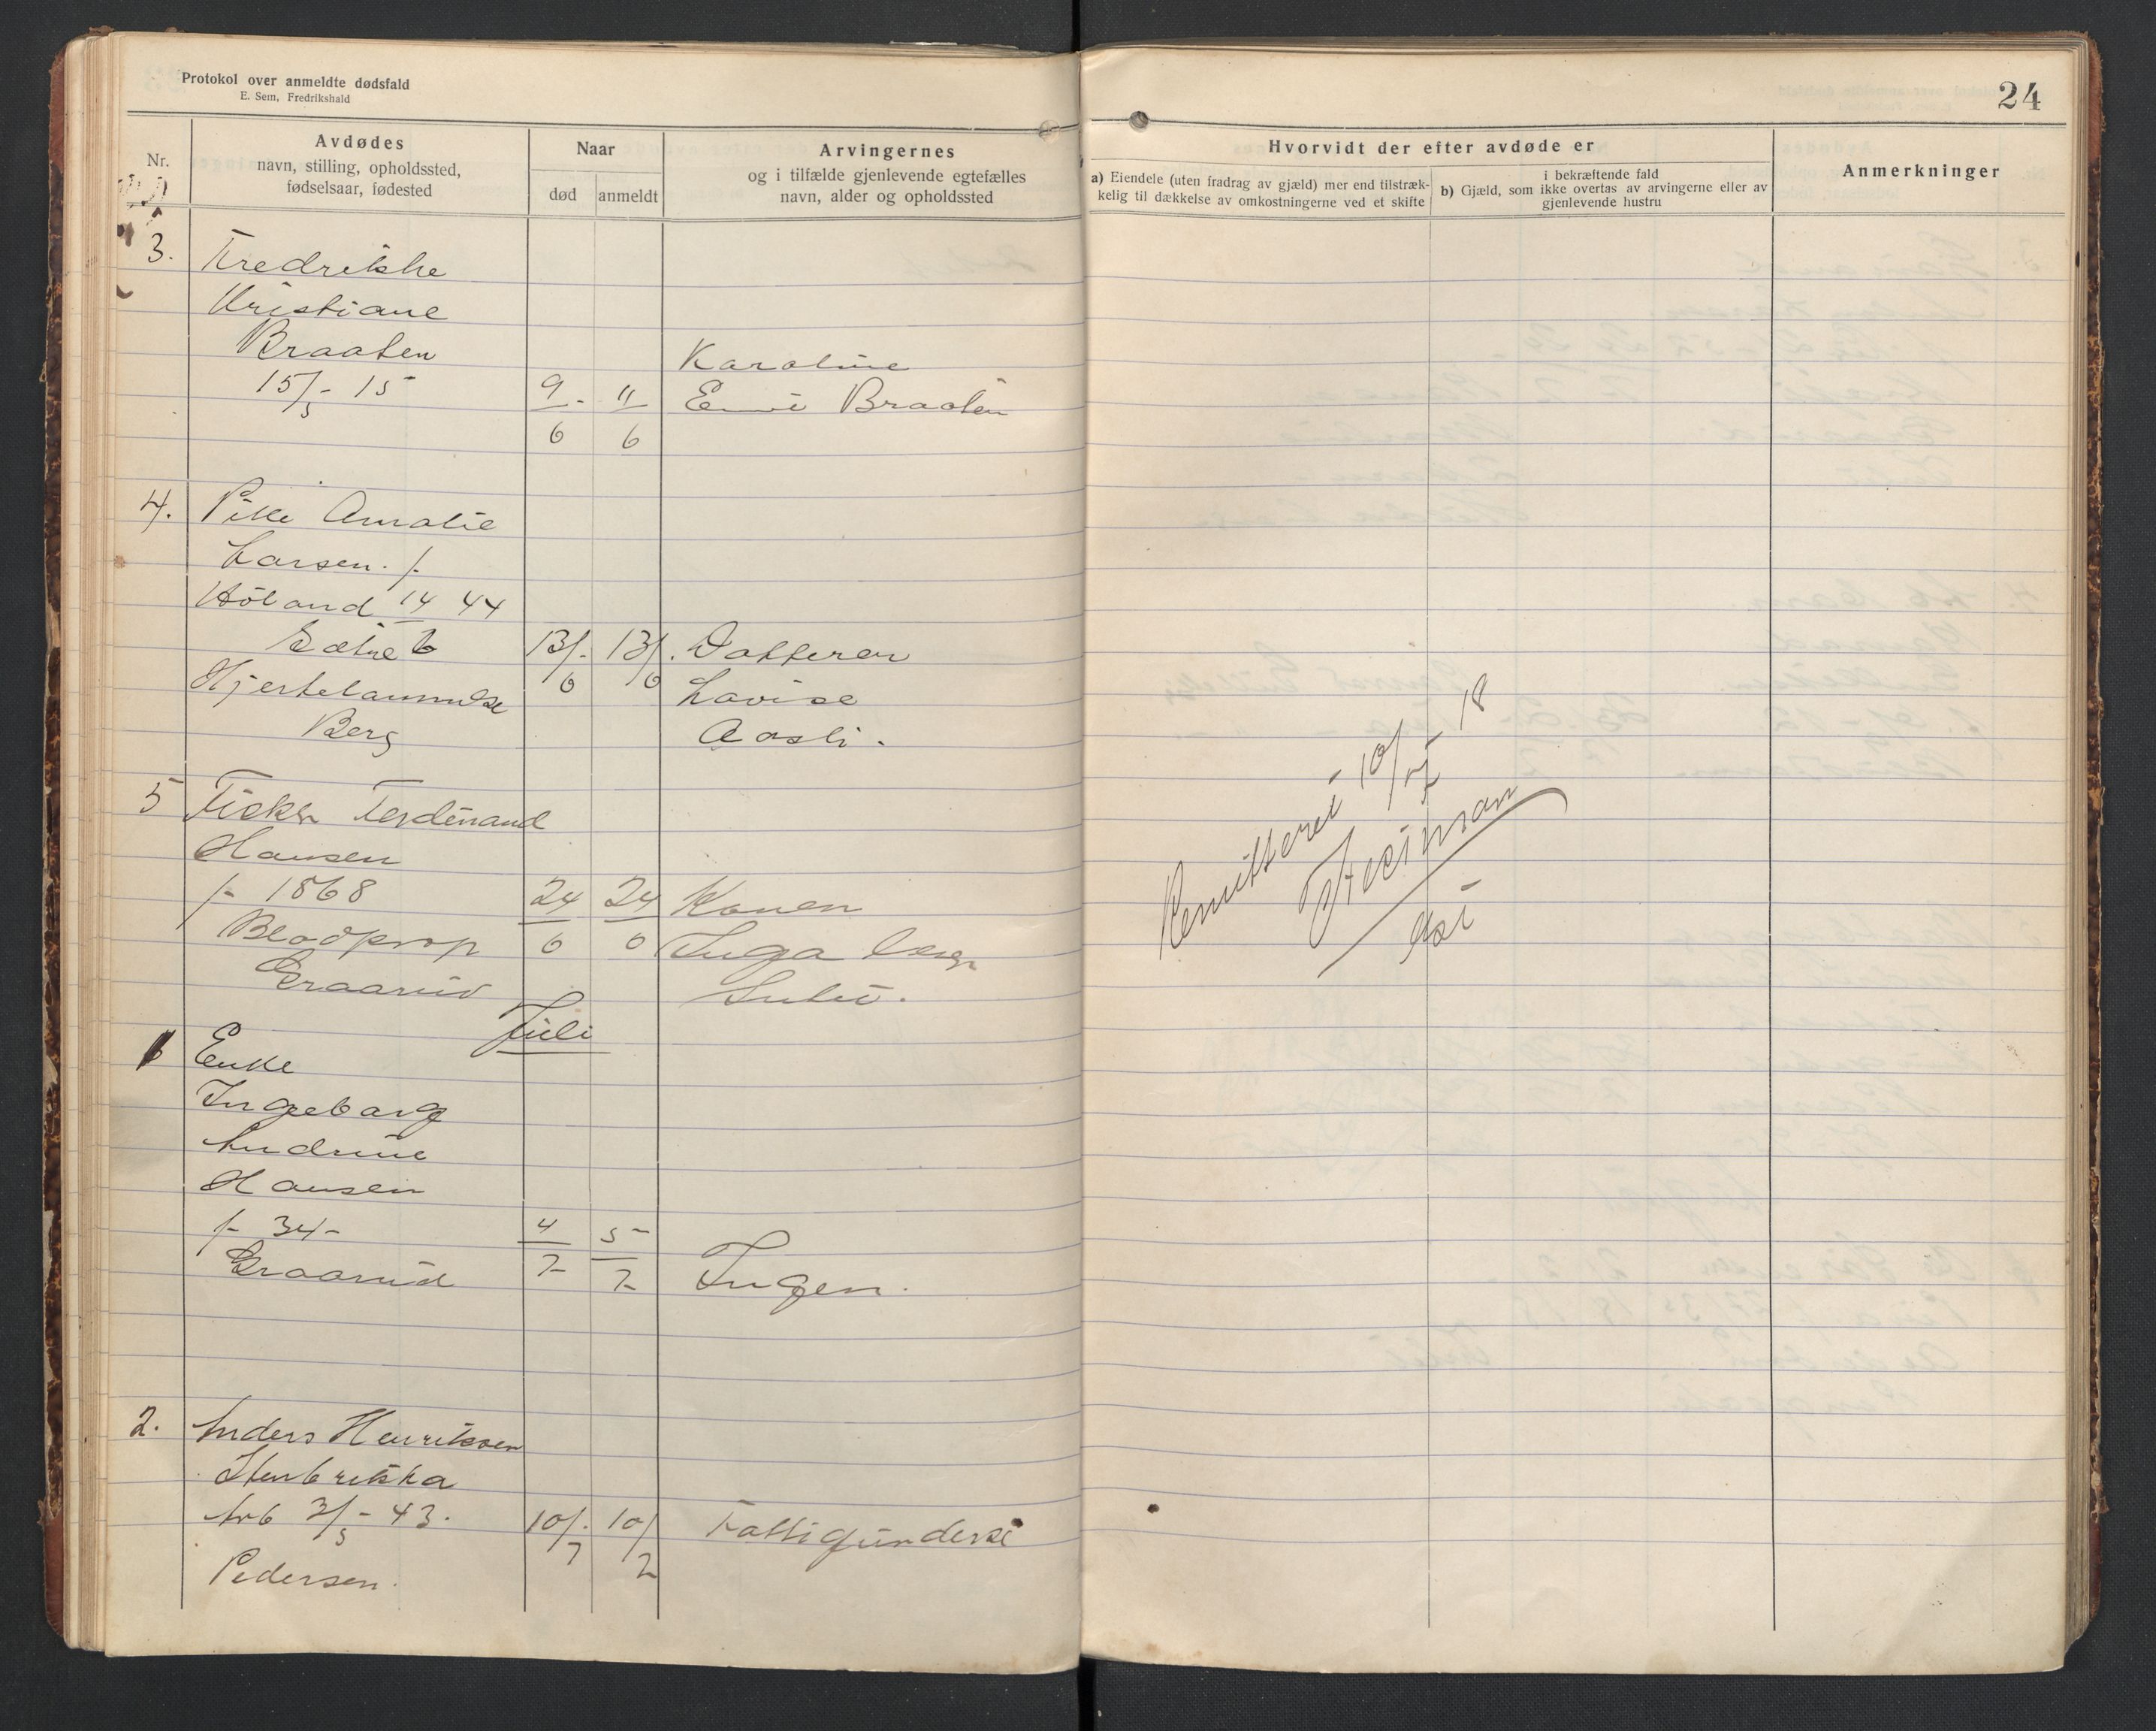 Protokol over anmeldte dødsfald
E. Sem, Fredrikshald
24
Nr.
Avdødes
navn, stilling, opholdssted,
fødselsaar, fødested
Naar
død
anmeldt
Arvingernes
og i tilfælde gjenlevende egtefælles
navn, alder og opholdssted
Hvorvidt der efter avdøde er
a) Eiendele (uten fradrag av gjæld) mer end tilstræk-
kelig til dækkelse av omkostningerne ved et skifte
i bekræftende fald
b) Gjæld, som ikke overtas av arvingerne eller av
gjenlevende hustru
Anmerkninger
3. Fredrikke
Kristiane
Braaten
Karoline
15/5 - 15 9/6 - 11/6 Braaten
4. Pike Amalie
Larsen. f.
Høland 14 44
13/6 - 13/6. Datteren
Lovise
Berg Aasli.
5 Ferdinand
Hansen
f. 1868 24/6 24/6 Konen
Blodprop Inga
Graarud
Juli
1 Enke
Ingeborg
Andrine
Hansen
f. 34- 4/7 5/7
Graarud Ingen.
2. Anders Henriksen
Stenbrekka
Arb 3/5 - 43. 10/7. 10/7 Fattigunderst
Pedersen.
Remitteret 10/5 - 18